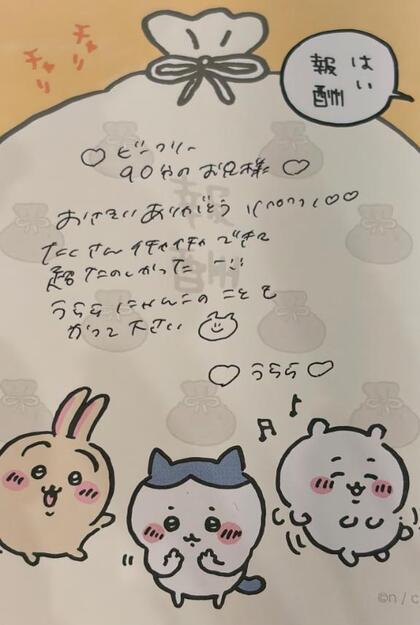 チャリ
チャリ
はい
報酬
報酬
♡ ビーフリー
90分の お兄様 ♡
おさそい ありがとう ♡♡
たくさん イチャイチャ できて
超 たのしかった
うらら にゃんこの ことも
かって 下さい
♡ うらら ♡
©n / c